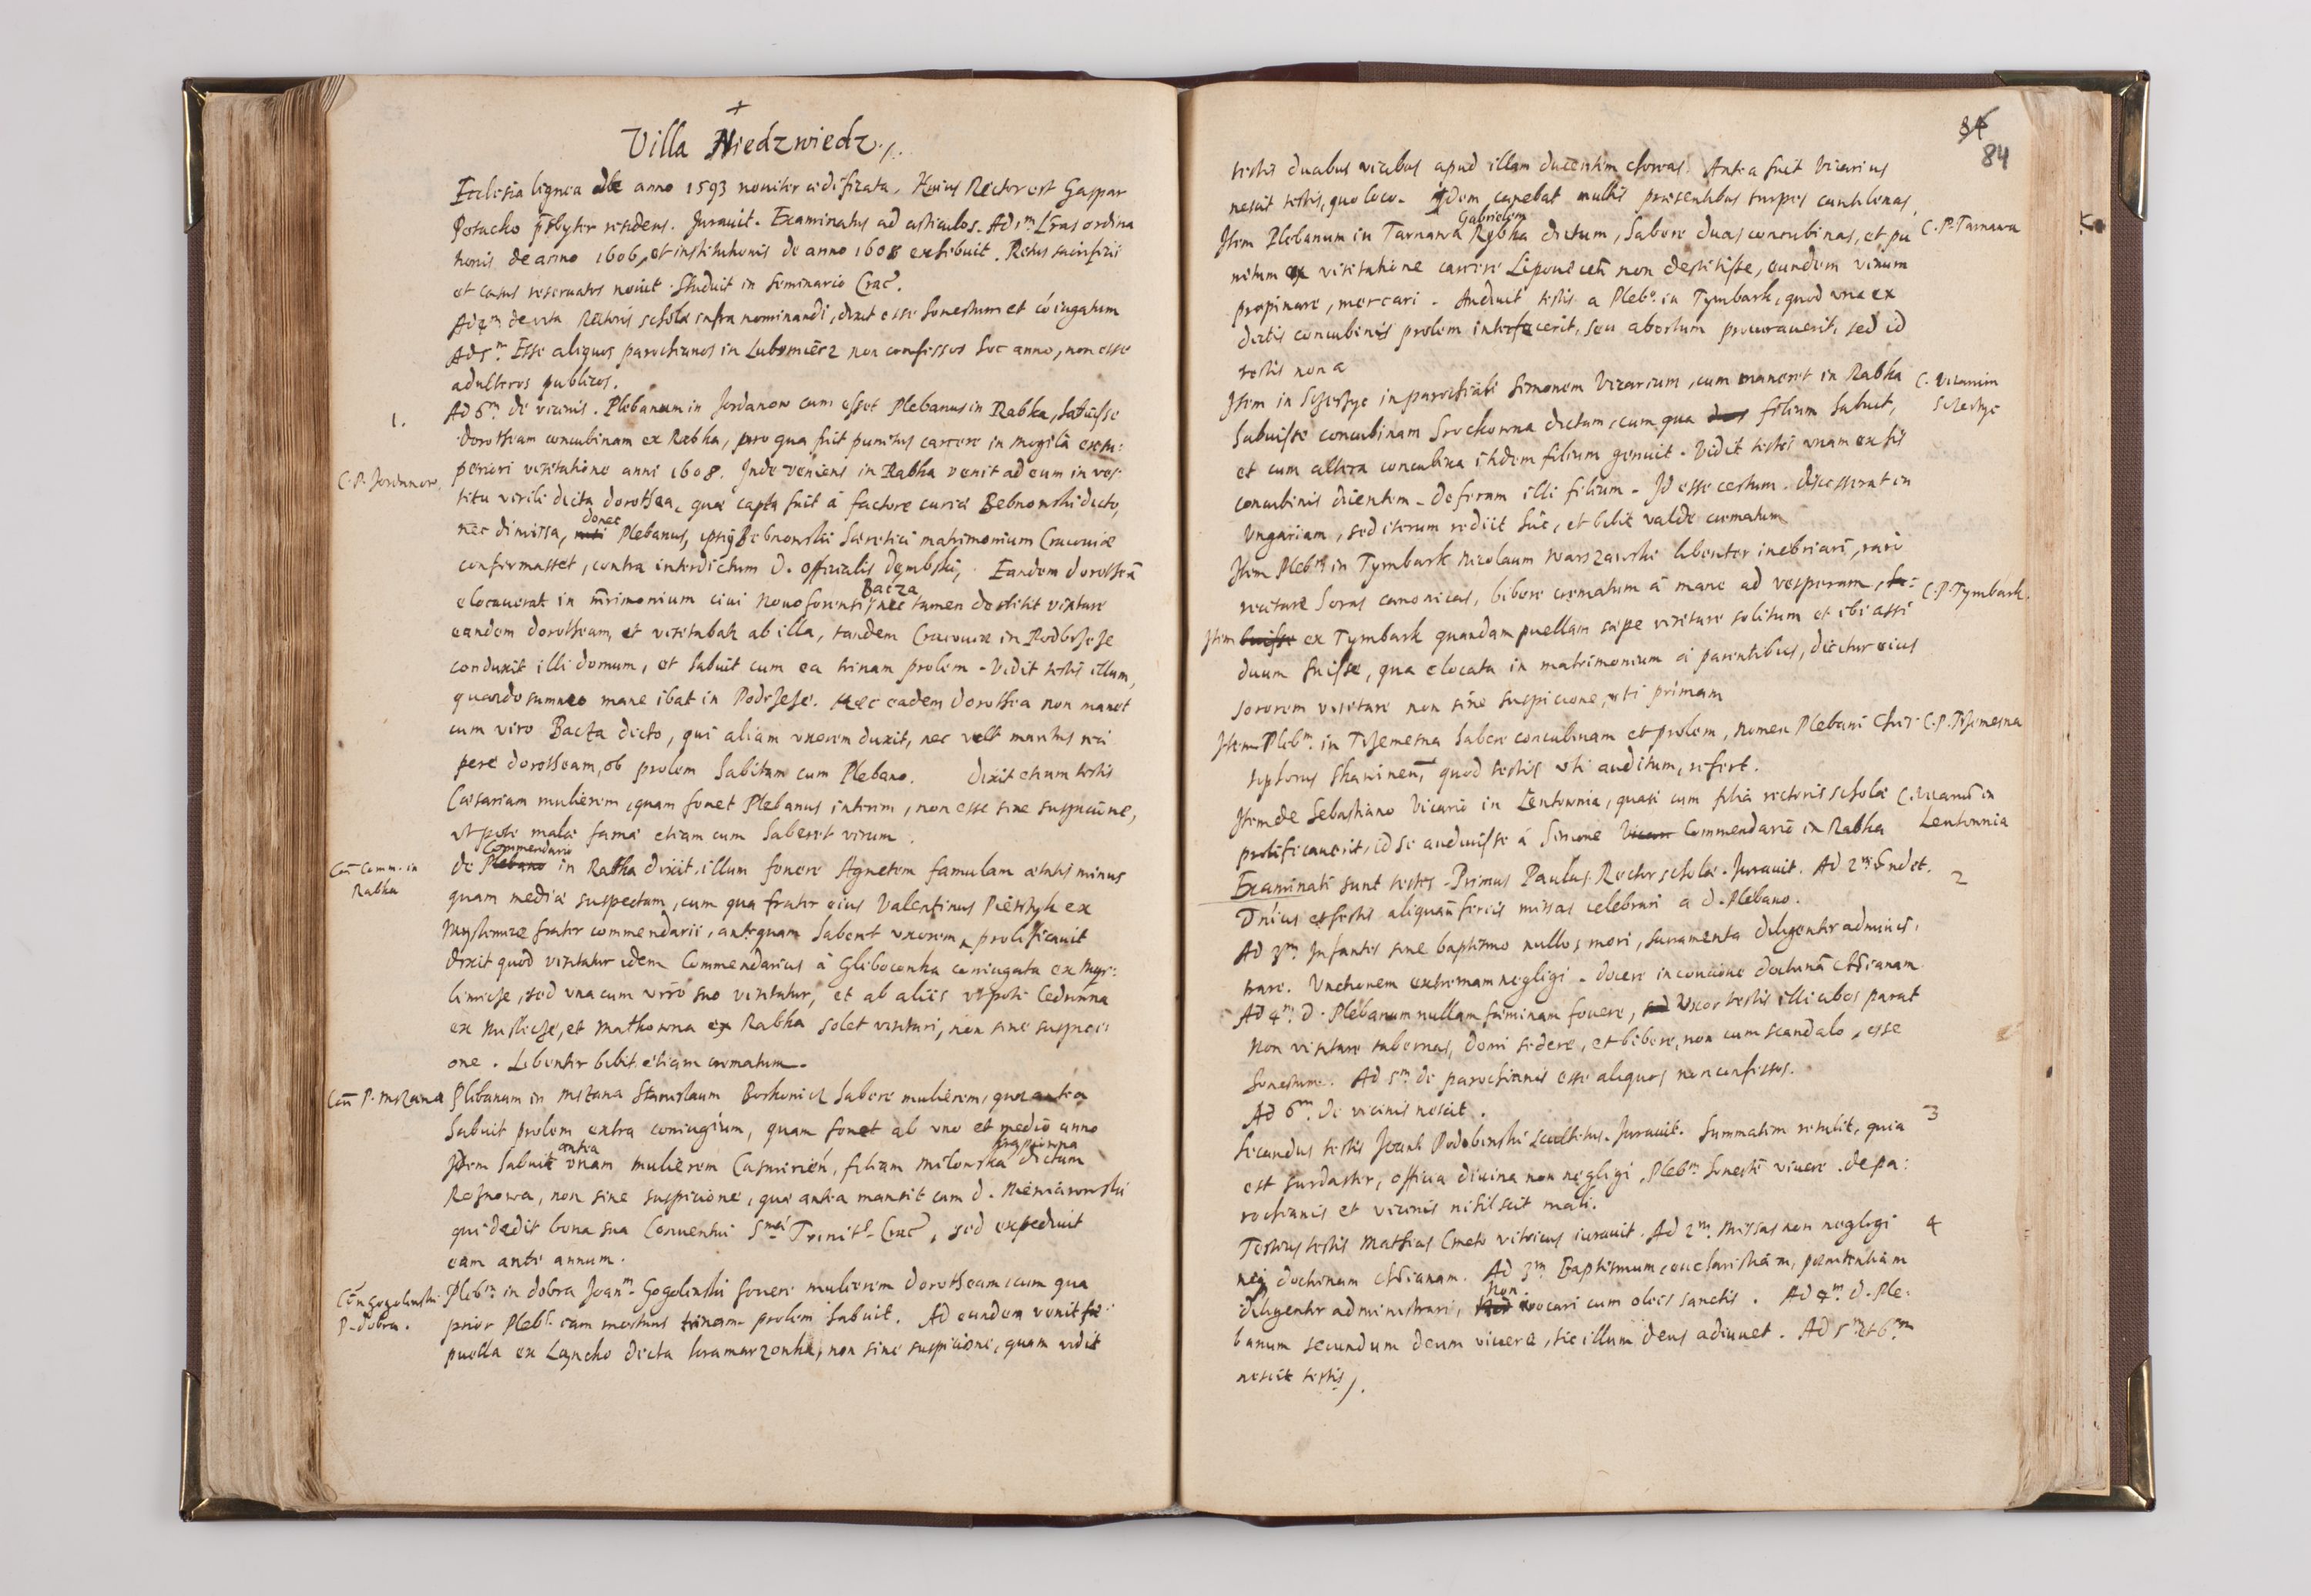 +
Villa Niedzwiedz./.
Ecclesia lignea de anno 1593 noviter aedificata. Huius Rector est Gaspar
Potacko pr̃sbyter residens. Juravit. Examinatus ad articulos. Ad 1m Lr̃as ordina
tionis de anno 1606, et institutionis de anno 1608 exhibuit. Ritus sacrificii
et casus reservatos novit. Studuit in Seminario Crac.
Ad 4m de vita Rectoris scholae infra nominandi, dixit esse honestum et cõiugatum
Ad 5m Esse aliquos parochianos in Lubomierz non confessos hoc anno, non esse
adulteros publicos.
1.
Ad 6m de vicinis. Plebanum in Jordanow cum esset Plebanus in Rabka, habuisse
dorotheam concubinam ex Rabka, pro qua fuit punitus carcere in Mogila ex su:
C. P. Jordanow.
periori visitatione anni 1608. Inde veniens in Rabka venit ad eum in ves:
titu virili dicta dorothea, quae capta fuit á factore curiae Bebnowski dicto,
donec
nec dimissa, Plebanus, ipsiq Bebnowski haeretici matrimonium Cracoviae
confirmasset, contra interdictum D. officialis dembski, Eandem dorotheã
Bacza
elocaverat in mr̃imonium civi Novoforensi, nec tamen destitit visitare
eandem dorotheam, et visitabatr ab illa, tandem Cracoviae in Podbrzeze
conduxit illi domum, et habuit cum ea trinam prolem. Vidit testis illum,
quando summo mane ibat in Podrzeze. Nec eadem dorothea non manet
cum viro Bacza dicto, qui aliam uxorem duxit, nec vult maritus reci
pere dorotheam, ob prolem habitam cum Plebano. Dixit etiam testis
Caesariam mulierem, quam fovet Plebanus interim, non esse sine suspicione,
ut pote malae famae etiam cum haberet virum.
Commendario
Cõn Comm. in
Rabka
de Plebano in Rabka dixit, illum fovere Agnetem famulam aetatis minus
quam mediae suspectam, cum qua frater eius Valentinus Pietrzyk ex
Myslenice frater commendarii, antequam haberet uxorem, prolificavit
dixit quod visitatur idem Commendarius á Gliboconka coniugata ex Mys:
limicze, sed una cum viro suo visitatur, et ab aliis utpote Cedrunna
ex Mislicze, et Mathowna ex Rabka solet visitari, non sine suspici
one. Libenter bibit etiam crematum.
Cõn P. Mszana
Plebanum in Mszana Stanislaum Borkowicz habere mulierem, quae antea
habuit prolem extra coniugium, quam fovet ab uno et medio anno
antea
Idem habuit unam mulierem Casimirien, filiam Milowska dictam
Rożnowa, non sine suspicione, quae antea mansit cum d. Nieniawski
qui dedit bona sua Conventui Smae Trinitis Crac, sed expedivit
eam ante annum.
Cõn Gogolinski
P. dobra.
Plebm in dobra Joanm Gogolinski fovere mulierem dorotheam, cum qua
prior Plebs iam mortuus trinam prolem habuit. Ad eundem venit
puella ex Lącko dicta, non sine suspicione, quam vidit
84
84
testis duabus vicibus apud illam ducentem choreas. Antea fuit Vicarius
nescit testis, quo loco. Idem canebat multis praesentibus turpes cantilenas,
Gabrielem
Item Plebanum in Tarnawa Rybka dictum, habere duas concubinas, et pu
C. P. Tarnawa
nitum ex visitatione carcere Lipovecen non destitisse, eundem vinum
propinare, mercari. Audivit testis a Plebo in Tymbark, quod una ex
dictis concubinis prolem interfecerit, seu abortum procuraverit, sed id
testis non a
Item in parochiali Simonem Vicarium, cum maneret in Rabka
C. Vicarium
habuisse concubinam Srockowna dictam, cum qua filium habuit,
et cum altera concubina itidem filium genuit. Vidit testis unam ex his
concubinis dicentem. Deferam illi filium. Id esse certum. discesserat in
Ungariam, sed iterum rediit huc, et bibit valde crematum
Item Plebm in Tymbark Nicolaum Warszawski libenter inebriari, raro
recitare horas canonicas, bibere crematum á mane ad vesperam,
C. P. Tymbark.
Item ex Tymbark quandam puellam saepe visitare solitum et ibi assi
duum fuisse, qua elocata in matrimonium á parentibus, dicitur eius
sororem visitare non sine suspicione, uti primam
Item Plebm in Trzemesna habere concubinam et prolem, nomen Plebani Chris
C. P. Trzemesna
tophorus Skawinen, quod testis uti auditum, refert.
Item de Sebastiano Vicario in Lentownia, quasi cum filia rectoris scholae
C. Vicariũ in
Lentownia
prolificaverit, id se audivisse á Simone Commendario in Rabka
Examinati sunt testes. Primus Paulus Rector scholae. Juravit. Ad 2m
2
et festis aliquan feriis missas celebrari a d. Plebano.
Ad 3m Infantes sine baptismo nullos mori, sacramenta diligenter adminis,
trare. Unctionem extremam negligi. docere in concione doctrinã chr̃ianam
Ad 4m D. Plebanum nullam faeminam fovere, Uxor testis illi cibos parat
Non visitare tabernas, domi sedere, et bibere, non cum scandalo, esse
honestum. Ad 5m de parochianis esse aliquos non confessos.
Ad 6m de vicinis nescit.
Secundus testis Joan̄ Podobinski scultetus. Juravit. Summatim retulit, quia
3
est surdaster, officia divina non negligi, Plebm honestè vivere. de pa:
rochianis et vicinis nihil scit mali.
Tertius testis Mathias Cmeto vitricus iuravit. Ad 2m Missas non negligi
4
neq doctrinam chr̃ianam. Ad 3m Baptismum, eucharistiam, paenitentiam
Non
diligenter administrari, vocari cum oleis sanctis. Ad 4m d. Ple:
banum secundum deum vivere, sic illum deus adiuvet. Ad 5m et 6m
nescit testis /.